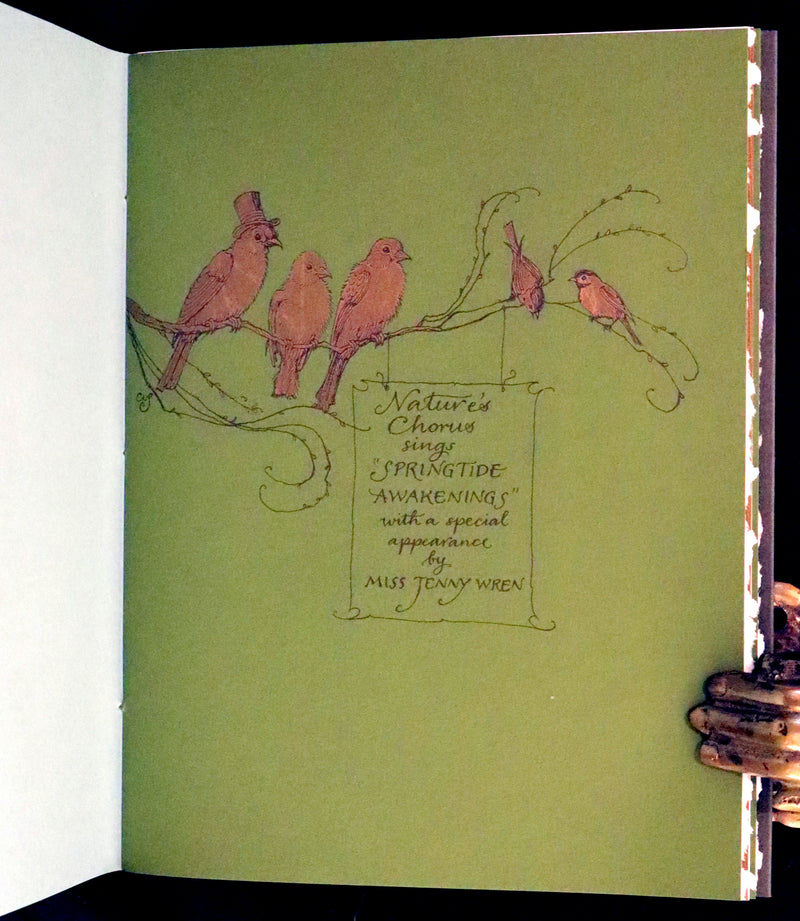 Nature's
Chorus
sings
"SPRINGTIDE
AWAKENINGS"
with a special
appearance
by
MISS JENNY WREN